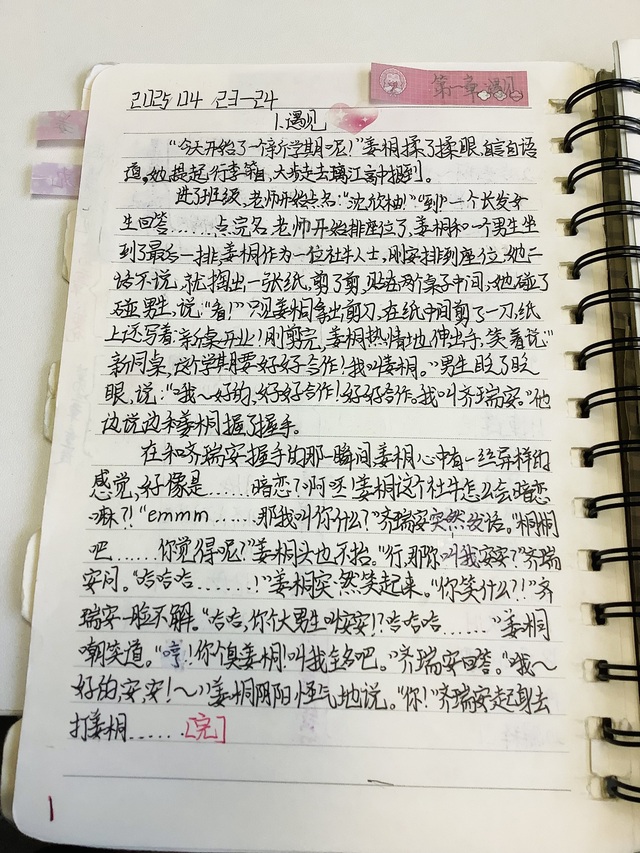 第一章 遇见
2025 04 23-24
1.遇见
“今天开始了一个新学期呢!”姜桐揉了揉眼,自言自语
道,她提起行李箱,大步走去璃江高中报到。
进了班级,老师开始点名:“沈欣柚!”“到”一个长发女
生回答......点完名,老师开始排座位了,姜桐和一个男生坐
到了最后一排,姜桐作为一位社牛人士,刚安排到座位,她二
话不说,就掏出一张纸,剪了剪,贴在两个桌子中间,她碰了
碰男生,说:“看!”只见姜桐拿出剪刀,在纸中间剪了一刀,纸
上还写着:新桌开业!刚剪完,姜桐热情地伸出手,笑着说“
新同桌,这学期要好好合作!我叫姜桐。”男生眨了眨
眼,说:“哦~好的,好好合作!好好合作。我叫齐瑞安。”他
边说边和姜桐握了握手。
在和齐瑞安握手的那一瞬间姜桐心中有一丝异样的
感觉,好像是......暗恋?啊呸!姜桐这个社牛怎么会暗恋
嘛?!“emmm......那我叫你什么?”齐瑞安突然发话。“桐桐
吧......你觉得呢?”姜桐头也不抬。“行,那你叫我安安?”齐瑞
安问。“哈哈哈......!”姜桐突然笑起来。“你笑什么?!”齐
瑞安一脸不解。“哈哈,你个大男生叫安安!?哈哈哈......”姜桐
嘲笑道。“哼!你个臭姜桐!叫我全名吧。”齐瑞安回答。“哦~
好的,安,安!~”姜桐阴阳怪气地说。“你!”齐瑞安起身去
打姜桐......[完]
1